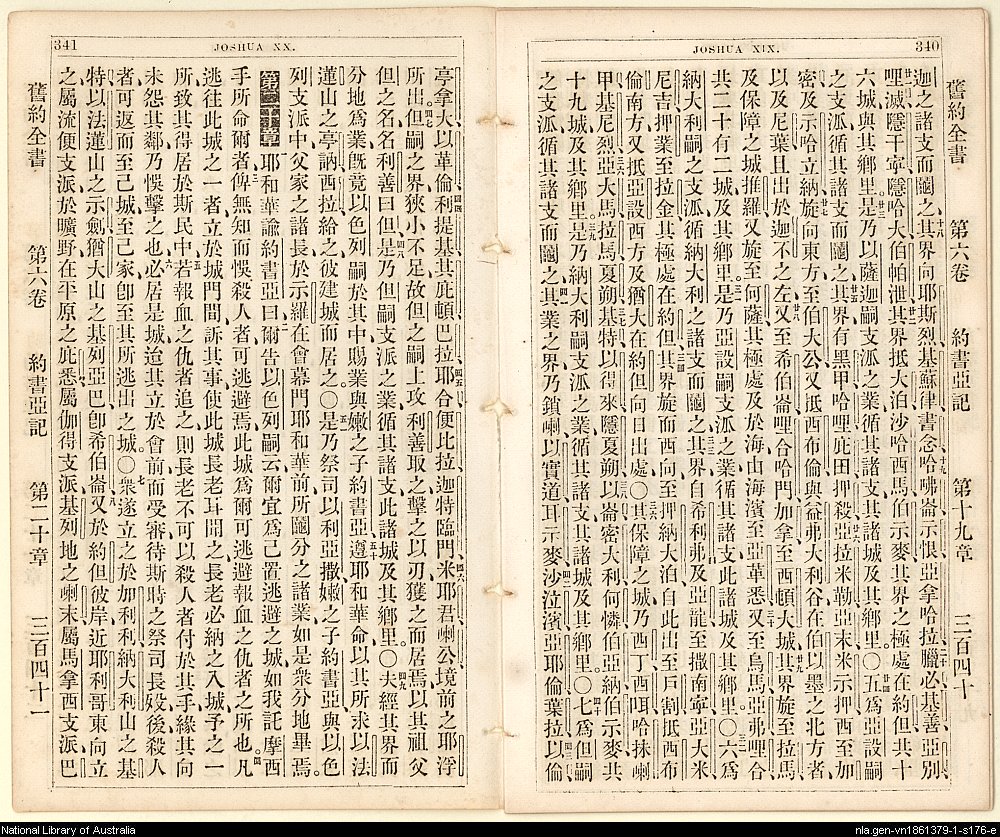 340
JOSHUA XIX.
舊約全書 第六卷 約書亞記 第十九章 三百四十
迦之諸支而鬮之其界向耶斯烈基蘇律書念哈咈崙示恨亞拿哈拉臘必基善亞別
哩滅隱干寧隱哈大伯帕泄其界抵大泊沙哈西馬伯示麥其界之極處在約但共十
六城與其鄉里。是乃以薩迦嗣支派之業循其諸支其諸城及其鄉里。〇五爲亞設嗣
之支派循其諸支而鬮之其界有黑甲哈哩庇田押殺亞拉米勒亞末米示押西至加
密及示哈立納旋向東方至伯大公又抵西布倫與益弗大利谷在伯以墨之北方者
以及尼葉且出於迦不之左又至希伯崙哩合哈門加拿至西頓大城其界旋至拉馬
及保障之城推羅又旋至何薩其極處及於海由海濱至亞革悉又至烏馬亞弗哩合
共二十有二城及其鄉里。是亞設嗣支派之業循其諸支此諸城及其鄉里。〇六爲
納大利嗣之支派循納大利之諸支而鬮之其界自希利弗及亞龍至撒南寧亞大米
尼吉押業至拉金其極處在約但其界旋而西向至押納大泊自此出至戶割抵西布
倫南方又抵亞設西方及猶大在約但向日出處〇其保障之城乃西丁西咡哈抹喇
甲基尼烈亞大馬拉馬夏朔基特以得來隱夏朔以崙密大利何憐伯亞納伯示麥共
十九城及其鄉里。是乃納大利嗣支派之業循其諸支其諸城及其鄉里。〇七爲但嗣
之支派循其諸支而鬮之其業之界乃鎖喇以實道耳示麥沙泣濱亞耶倫葉拉以倫
341
JOSHUA XX.
亭拿大以革倫利提基其庇頓巴拉耶合便比拉迦特臨門米耶君喇公境前之耶浮
所出。但嗣之界狹小不足故但之嗣上攻利善取之擊之以刃獲之而居焉以其祖父
但之名名利善曰但是乃但嗣支派之業循其諸支此諸城及其鄉里。〇夫經其界而
分地爲業既竟以色列嗣於其中賜業與嫩之子約書亞遵耶和華命以其所求以法
蓮山之亭訥西拉給之彼建城而居之。〇是乃祭司以利亞撒嫩之子約書亞與以色
列支派中父家之諸長於示羅在會幕門耶和華前所鬮分之諸業如是衆分地畢焉
第二十章 耶和華諭約書亞曰爾告以色列嗣云爾宜爲己置逃避之城如我託摩西
手所命爾者俾無知而悞殺人者可逃避焉此城爲爾可逃避報血之仇者之所也凡
逃往此城之一者立於城門間訴其事使此城長老耳聞之長老必納之入城予之一
所致其得居於斯民中若報血之仇者追之則長老不可以殺人者付於其手緣其向
未怨其鄰乃悞擊之也必居是城迨其立於會前而受審待斯時之祭司長歿後殺人
者可返而至己城至己家卽至其所逃出之城。〇衆遂立之於加利利納大利山之基
特以法蓮山之示劍猶大山之基列亞巴卽希伯崙又於約但彼岸近耶利哥東向立
之屬流便支派於曠野在平原之庇悉屬伽得支派基列地之喇末屬馬拿西支派巴
舊約全書 第六卷 約書亞記 第二十章 三百四十一
National Library of Australia
nla.gen-vn1861379-1-s176-e